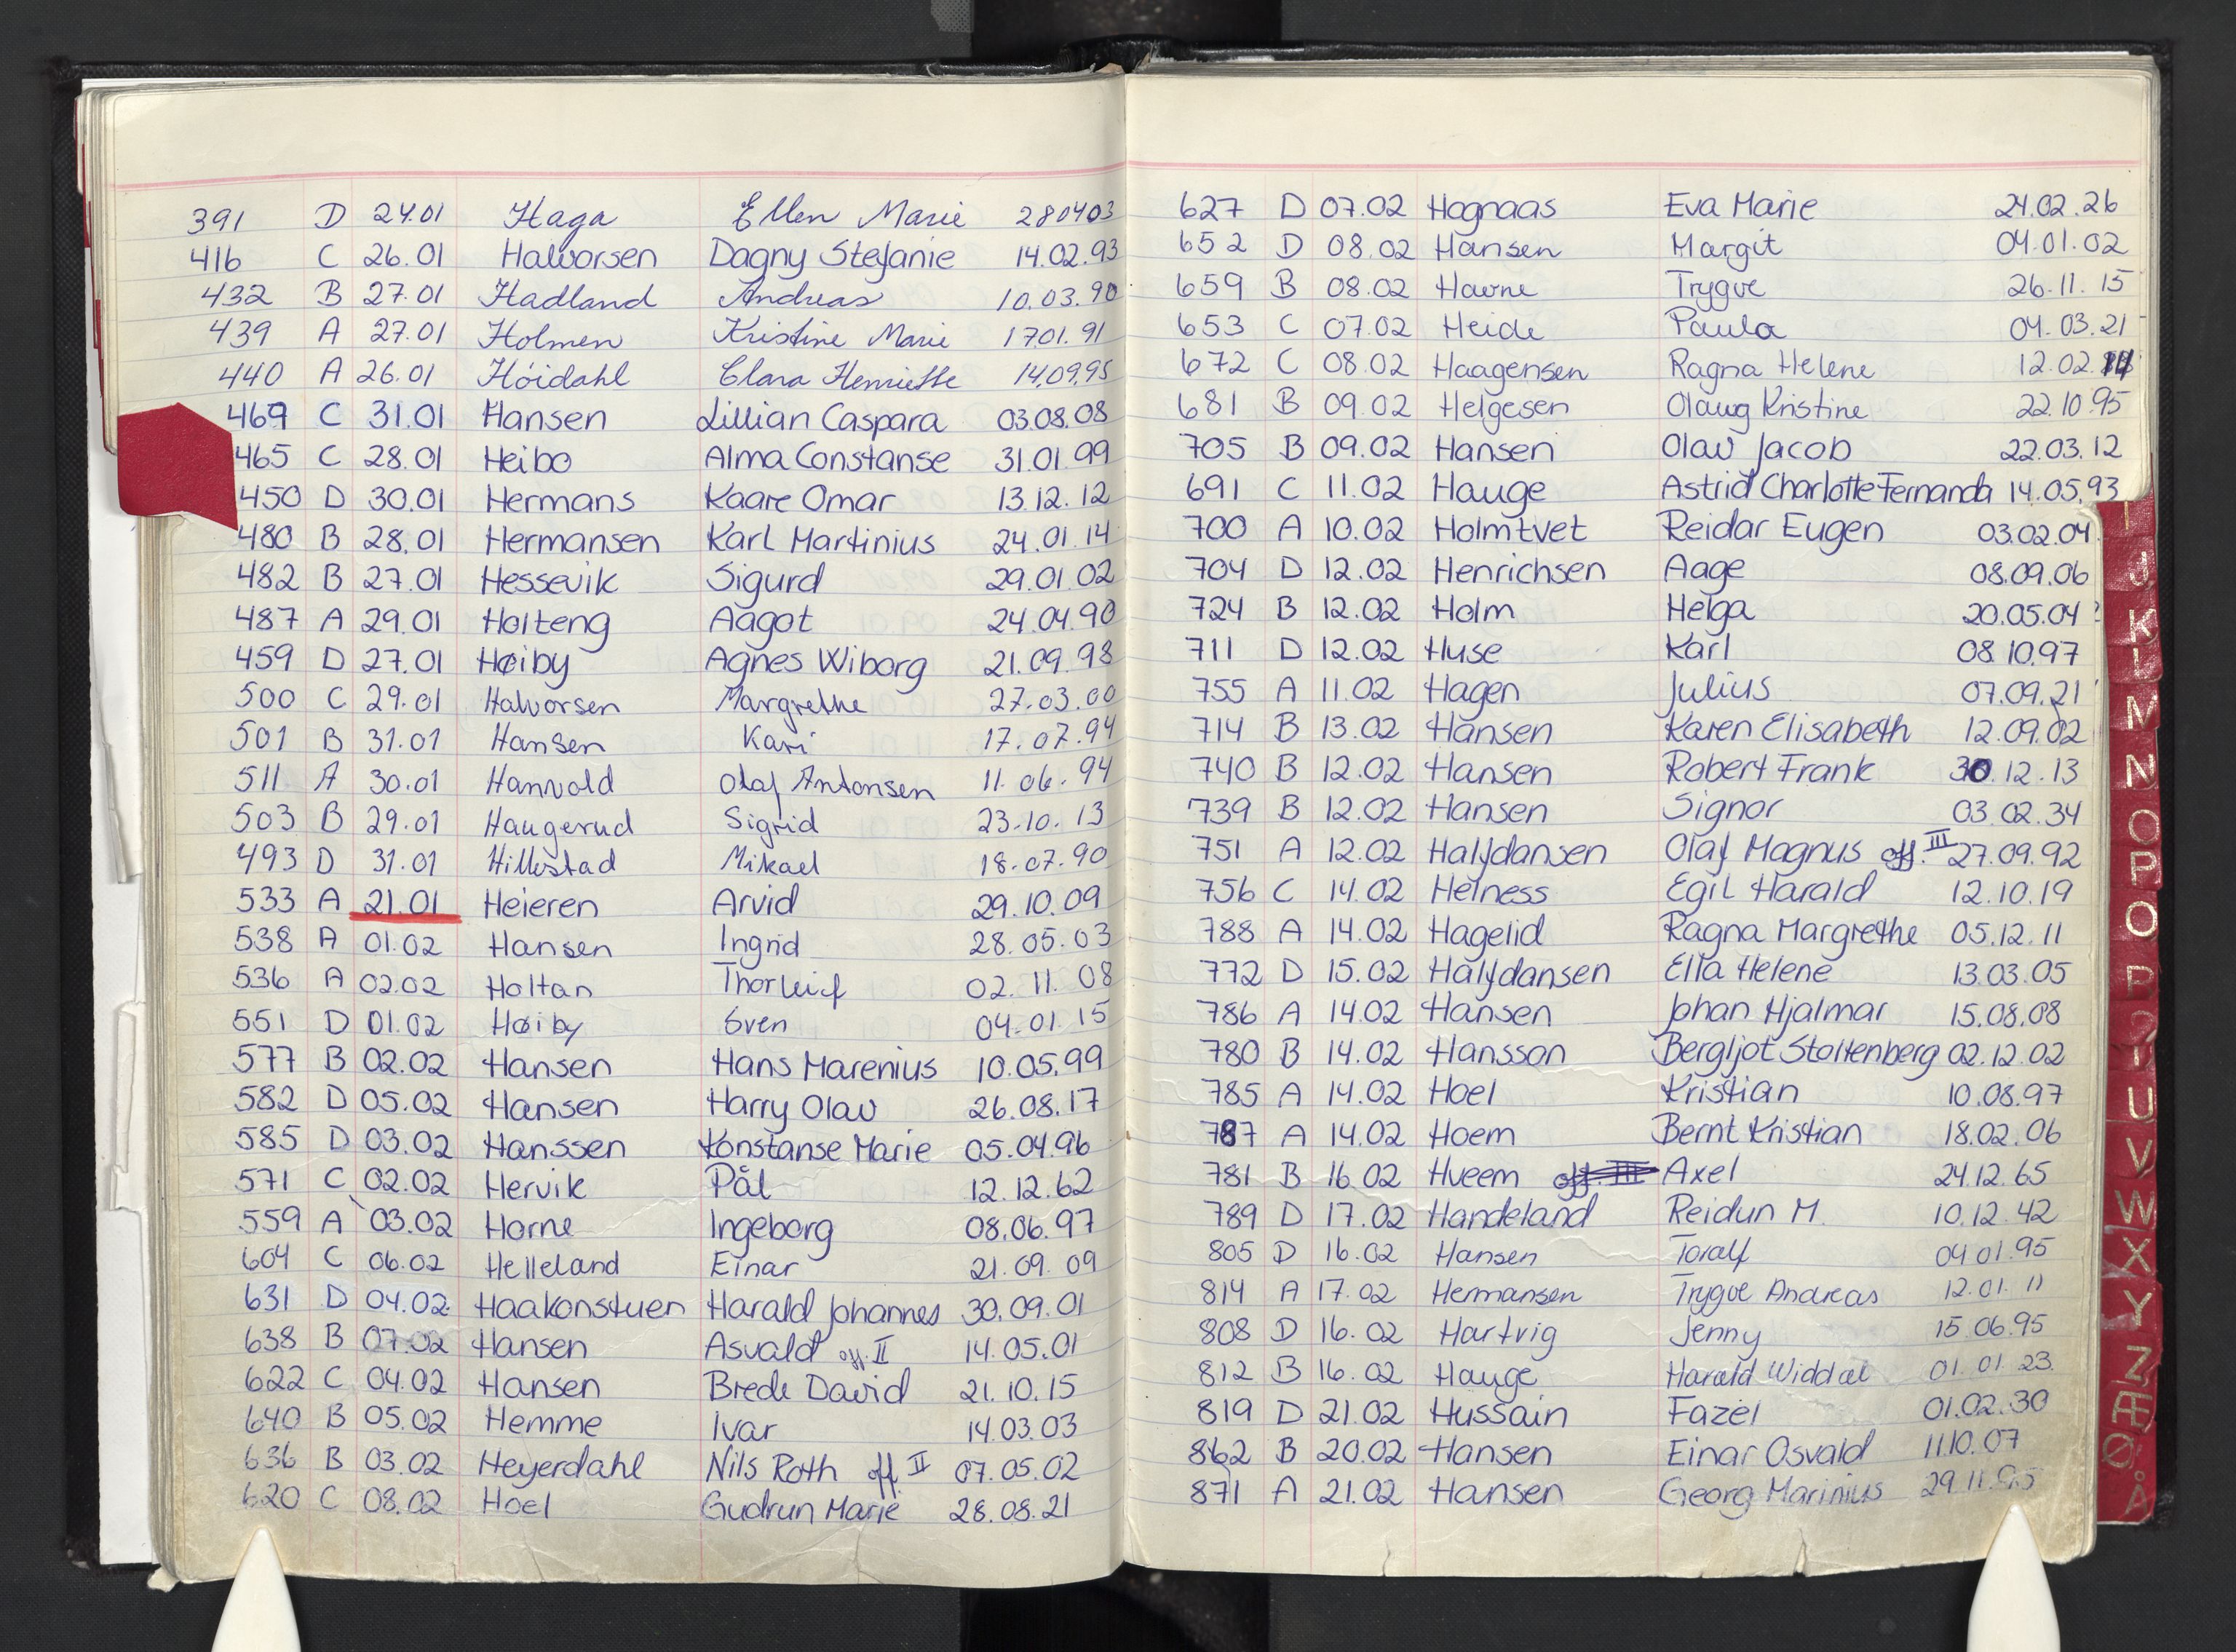 391 D 24.01 Haga Ellen Marie 280403
416 C 26.01 Halvorsen Dagny Stefanie 14.02.93
432 B 27.01 Hadland Andreas 10.03.90
439 A 27.01 Holmen Kristine Marie 1701.91
440 A 26.01 Hóidahl Clara Henriette 14.09.95
469 C 31.01 Hansen Lillian Caspara 03.08.08
465 C 28.01 Heibo Alma Constanse 31.01.99
450 D 30.01 Hermans Kaare Omar 13.12.12
480 B 28.01 Hermansen Karl Martinius 24.01.14
482 B 27.01 Hessevik Sigurd 29.01.02
487 A 29.01 Holteng Aagot 24.04.90
459 D 27.01 Høiby Agnes Wiborg 21.09.98
500 C 29.01 Halvorsen Margrethe 27.03.00
501 B 31.01 Hansen Kari 17.07.94
511 A 30.01 Hannvold Olaf Antonsen 11.06.94
503 B 29.01 Haugerud Sigrid 23.10.13
493 D 31.01 Hillestad Mikael 18.07.90
533 A 21.01 Heieren Arvid 29.10.09
538 A 01.02 Hansen Ingrid 28.05.03
536 A 02.02 Holtan Thorleif 02.11.08
551 D 01.02 Høiby Sven 04.01.15
577 B 02.02 Hansen Hans Marenius 10.05.99
582 D 05.02 Hansen Harry Olav 26.08.17
585 D 03.02 Hanssen Konstanse Marie 05.04.96
571 C 02.02 Hervik Pål 12.12.62
559 A 03.02 Horne Ingeborg 08.06.97
604 C 06.02 Helleland Einar 21.09.09
631 D 04.02 Haakonstuen Harald Johannes 30.09.01
638 B 07.02 Hansen Asvald off. II 14.05.01
622 C 04.02 Hansen Brede David 21.10.15
640 B 05.02 Hemme Ivar 14.03.03
636 B 03.02 Heyerdahl Nils Roth off. II 07.05.02
620 C 08.02 Hoel Gudrun Marie 28.08.21
627 D 07.02 Hognaas Eva Marie 24.02.26
652 D 08.02 Hansen Margit 04.01.02
659 B 08.02 Havne Trygve 26.11.15
653 C 07.02 Heide Paula 04.03.21
672 C 08.02 Haagensen Ragna Helene 12.02.
681 B 09.02 Helgesen Olaug Kristine 22.10.95
705 B 09.02 Hansen Olav Jacob 22.03.12
691 C 11.02 Hauge Astrid Charlotte Fernanda 14.05.93
700 A 10.02 Holmtvet Reidar Eugen 03.02.04
704 D 12.02 Henrichsen Aage 08.09.06
724 B 12.02 Holm Helga 20.05.04
711 D 12.02 Huse Karl 08.10.97
755 A 11.02 Hagen Julius 07.09.21
714 B 13.02 Hansen Karen Elisabeth 12.09.02
740 B 12.02 Hansen Robert Frank 30.12.13
739 B 12.02 Hansen Signor 03.02.34
751 A 12.02 Halfdansen Olaf Magnus off. III 27.09.92
756 C 14.02 Helness Egil Harald 12.10.19
788 A 14.02 Hagelid Ragna Margrethe 05.12.11
772 D 15.02 Halfdansen Ella Helene 13.03.05
786 A 14.02 Hansen Johan Hjalmar 15.08.08
780 B 14.02 Hansson Bergljot Stoltenberg 02.12.02
785 A 14.02 Hoel Kristian 10.08.97
787 A 14.02 Hoem Bernt Kristian 18.02.06
781 B 16.02 Hveem off. III Axel 24.12.65
789 D 17.02 Handeland Reidun M. 10.12.42
805 D 16.02 Hansen Toralf 04.01.95
814 A 17.02 Hermansen Trygve Andreas 12.01.11
808 D 16.02 Hartvig Jenny 15.06.95
812 B 16.02 Hauge Harald Widdal 01.01.23.
819 D 21.02 Hussain Fazel 01.02.30
862 B 20.02 Hansen Einar Osvald 11.10.07
871 A 21.02 Hansen Georg Marinius 29.11.95
I
J
K
L
M
N
O
P
Q
R
S
T
U
V
W
X
Y
Z
Æ
Ø
Å